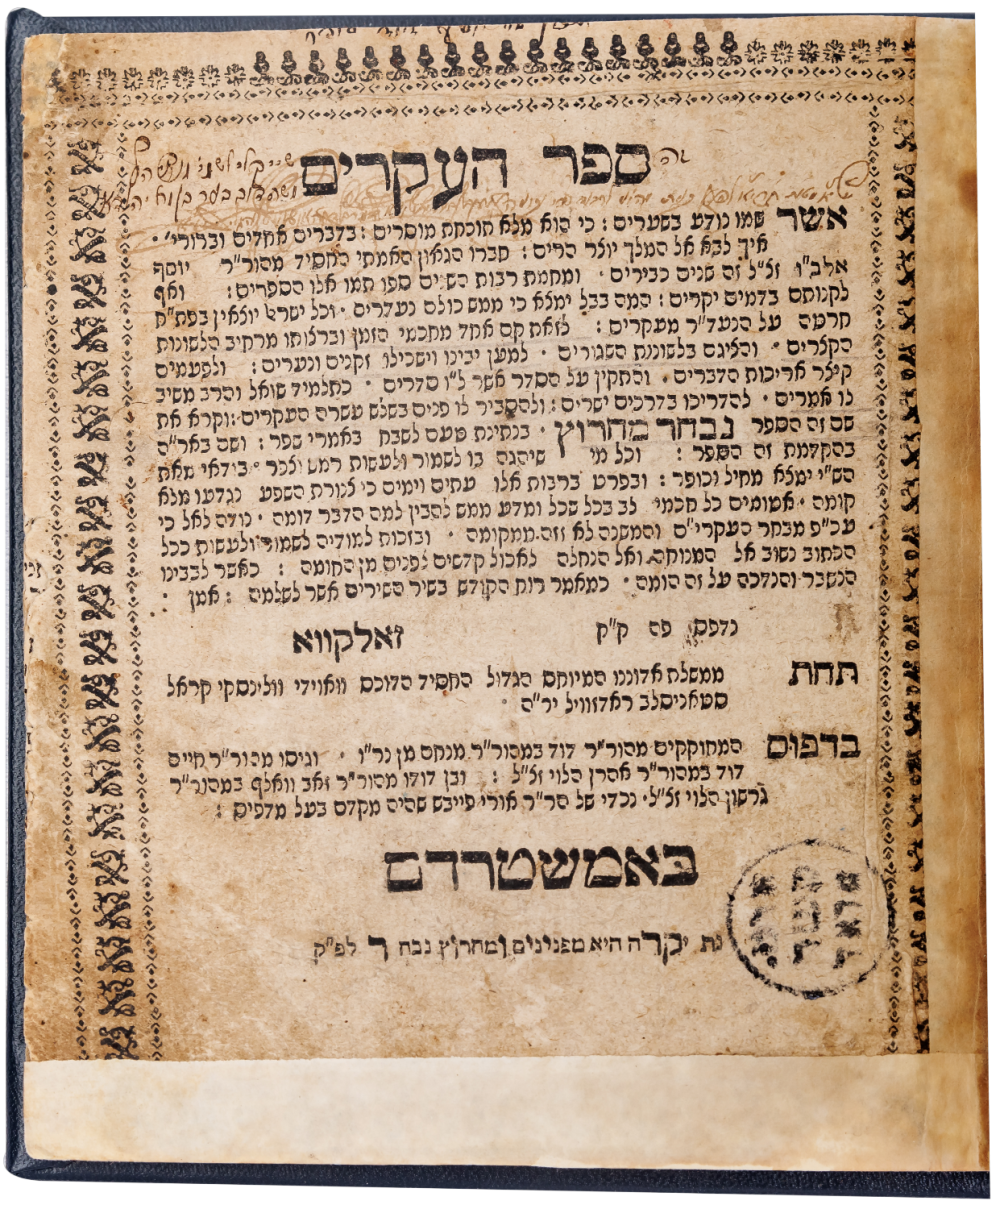 ספר העקרים
אשר שמו נודע בשערים : כי הוא מלא תוכחת מוסרים : בדברים אחדים וברורי' .
איך לבא אל המלך יוצר הרים : חברו הגאון האמתי החסיד מהור"ר יוסף
אלב"ו ז"ל זה שנים כבירים . ומחמת רבות השנים ספו תמו אלו הספרים : ואף
לקנותם בדמים יקרים : המה בבל ימצא כי ממש כולם נעדרים . וכל ישראל יוצאין בפח"ח
חרטה על הנעד"ר מעקרים : לזאת קם אחד מחכמי הזמן וברצותו מרחיב הלשונות
הקצרים . והציגם בלשונות השגורים . למען יבינו וישכילו זקנים ונערים : ולפעמים
קיצר אריכות הדברים . והתקין על הסדר אשר ל"ו סדרים . כתלמיד שואל והרב משיב
לו אמרים . להדריכו בדרכים ישרים : ולהסביר לו פנים בשלש עשרה העקרים : וקרא את
שם זה הספר נבחר מחרוץ . בנתינת טעם לשבח באמרי שפר : ושם באר"ה
בהקדמת זה הספר : וכל מי שיהגה בו לשמור ולעשות
הש"י ימצא מחיל וכופר : ובפרט ברבות אלו עתים וימים כי צנורת השפע נגדעו מלא
קומה . אטומים כל חכמי לב בכל שכל ומדע ממש להבין למה הדבר דומה . נודה לאל כי
עכ"פ מבחר העקרי"ם והמשנה לא זזה ממקומה . ובזכות למודיה לשמור ולעשות ככל
הכתוב נשוב אל המנוחה ואל הנחלה לאכול קדשים לפנים מן החומה : כאשר לבבינו
הנשבר והנדכה על זה הומה . כמאמר רוח הקודש בשיר השירים אשר לשלמה : אמן
נדפס פה ק"ק זאלקווא
תחת ממשלת אדוננו המיוחס הגדול החסיד הדוכס וואוידי ווילינסקי קראל
סטאניסלב ראדזוויל יר"ה .
בדפוס המחוקקים מהור"ר דוד במהור"ר מנחם מן נר"ו . וגיסו מהור"ר חיים
דוד במהור"ר אהרן הלוי ז"ל : ובן דודו מהור"ר זאב וואלף במהור"ר
גרשון הלוי ז"ל נכדי של הר"ר אורי פייבש שהיה מקדם בעל מדפיס :
באמשטרדם
יקרה היא מפנינים ומחרוץ נבחר לפ"ק